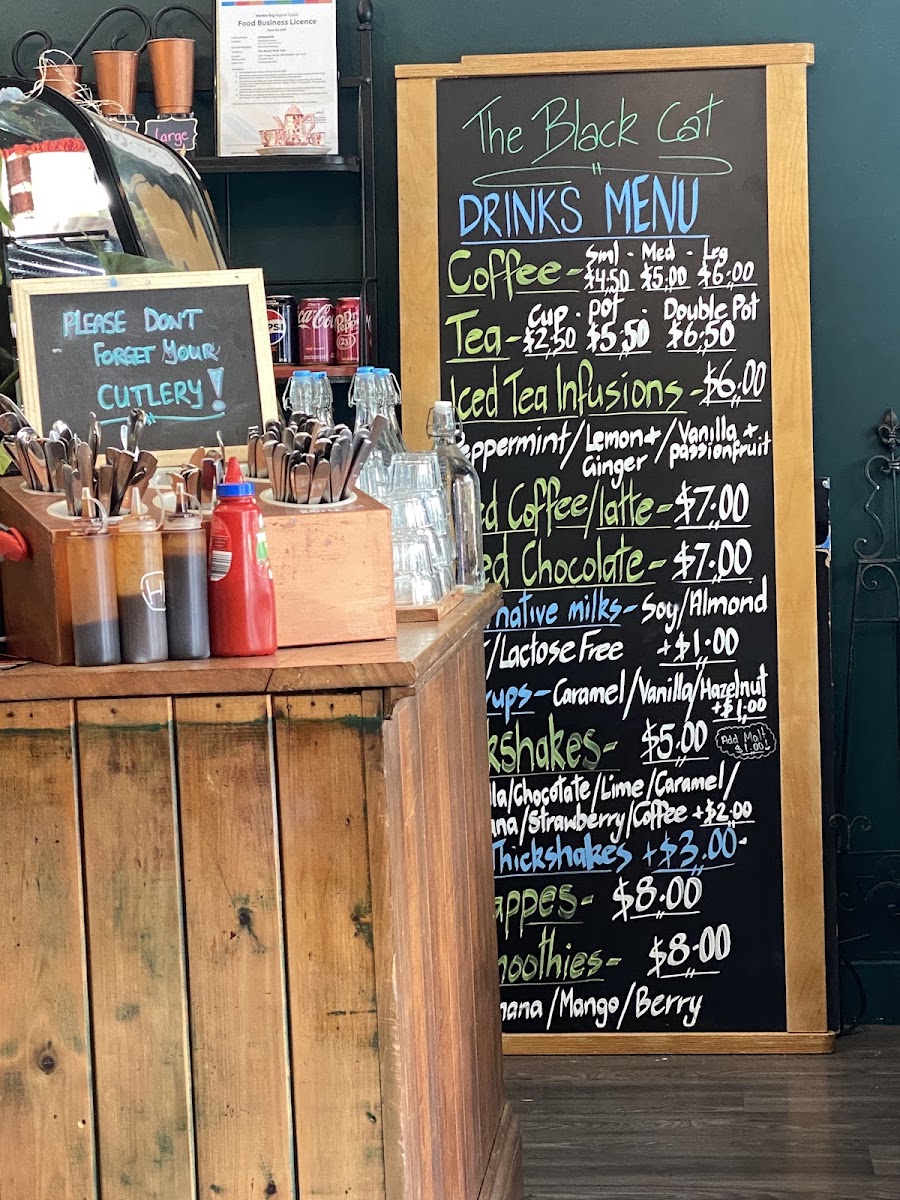 Food Business Licence
large
PEPSI
Coca-Cola
Dr Pepper
23
PLEASE DON'T
FORGET YOUR
CUTLERY!
The Black Cat
DRINKS MENU
Sml - Med - Lrg
Coffee - $4.50 $5.00 $6.00
Cup - Pot - Double Pot
Tea - $2.50 $5.50 $6.50
Iced Tea Infusions - $6.00
eppermint / Lemon + Ginger / Vanilla + passionfruit
ed Coffee/latte - $7.00
ed Chocolate - $7.00
native milks - Soy/Almond
/Lactose Free +$1.00
ups - Caramel/Vanilla/Hazelnut
+$1.00
kshakes - $5.00
Add Malt
$1.00
la/Chocolate/Lime/Caramel/
ana/Strawberry/Coffee +$2.00
Thickshakes +$3.00
appes - $8.00
moothies - $8.00
nana/Mango/Berry